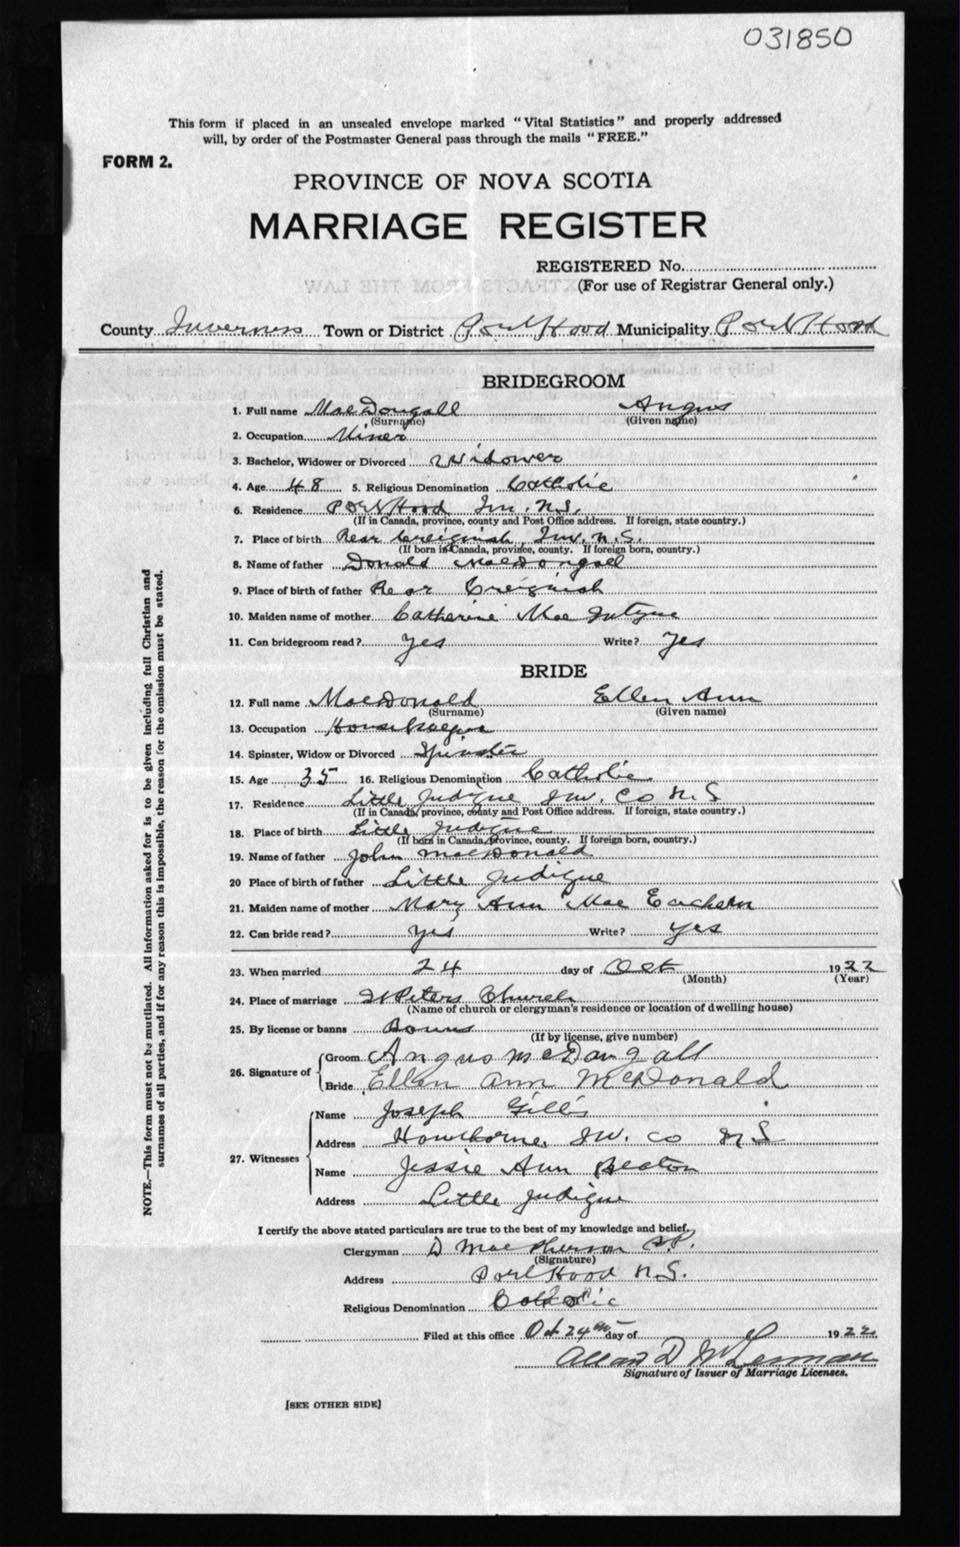 031850
This form if placed in an unsealed envelope marked "Vital Statistics" and properly addressed
will, by order of the Postmaster General pass through the mails "FREE."
FORM 2.
PROVINCE OF NOVA SCOTIA
MARRIAGE REGISTER
REGISTERED No.
(For use of Registrar General only.)
County Inverness Town or District Port Hood Municipality Port Hood
BRIDEGROOM
1. Full name MacDougall Angus
(Surname) (Given name)
2. Occupation Miner
3. Bachelor, Widower or Divorced Widower
4. Age 48 5. Religious Denomination Catholic
6. Residence Port Hood Inv. N.S.
(If in Canada, province, county and Post Office address. If foreign, state country.)
7. Place of birth Rear Creignish Inv. N.S.
(If born in Canada, province, county. If foreign born, country.)
8. Name of father Donald MacDougall
9. Place of birth of father Rear Creignish
10. Maiden name of mother Catherine Mac Intyre
11. Can bridegroom read? Yes Write? Yes
BRIDE
12. Full name MacDonald Ellen Ann
(Surname) (Given name)
13. Occupation Housekeeper
14. Spinster, Widow or Divorced Spinster
15. Age 35 16. Religious Denomination Catholic
17. Residence Little Judique Inv. Co N.S
(If in Canada, province, county and Post Office address. If foreign, state country.)
18. Place of birth Little Judique
(If born in Canada, province, county. If foreign born, country.)
19. Name of father John MacDonald
20 Place of birth of father Little Judique
21. Maiden name of mother Mary Ann Mac Eachern
22. Can bride read? Yes Write? Yes
23. When married 24 day of Oct 1922
(Month) (Year)
24. Place of marriage St Peters Church
(Name of church or clergyman's residence or location of dwelling house)
25. By license or banns Banns
(If by license, give number)
26. Signature of
Groom. Angus McDougall
Bride Ellen Ann McDonald
27. Witnesses
Name Joseph Gillis
Address Hawthorne, Inv. Co N.S
Name Jessie Ann Beaton
Address Little Judique
I certify the above stated particulars are true to the best of my knowledge and belief.
Clergyman D MacPherson P.P.
(Signature)
Address Port Hood N.S.
Religious Denomination Catholic
Filed at this office Oct 24th day of 1922
Allan D
Signature of Issuer of Marriage Licenses.
[SEE OTHER SIDE]
NOTE.—This form must not be mutilated. All information asked for is to be given including full Christian and
surnames of all parties, and if for any reason this is impossible, the reason for the omission must be stated.